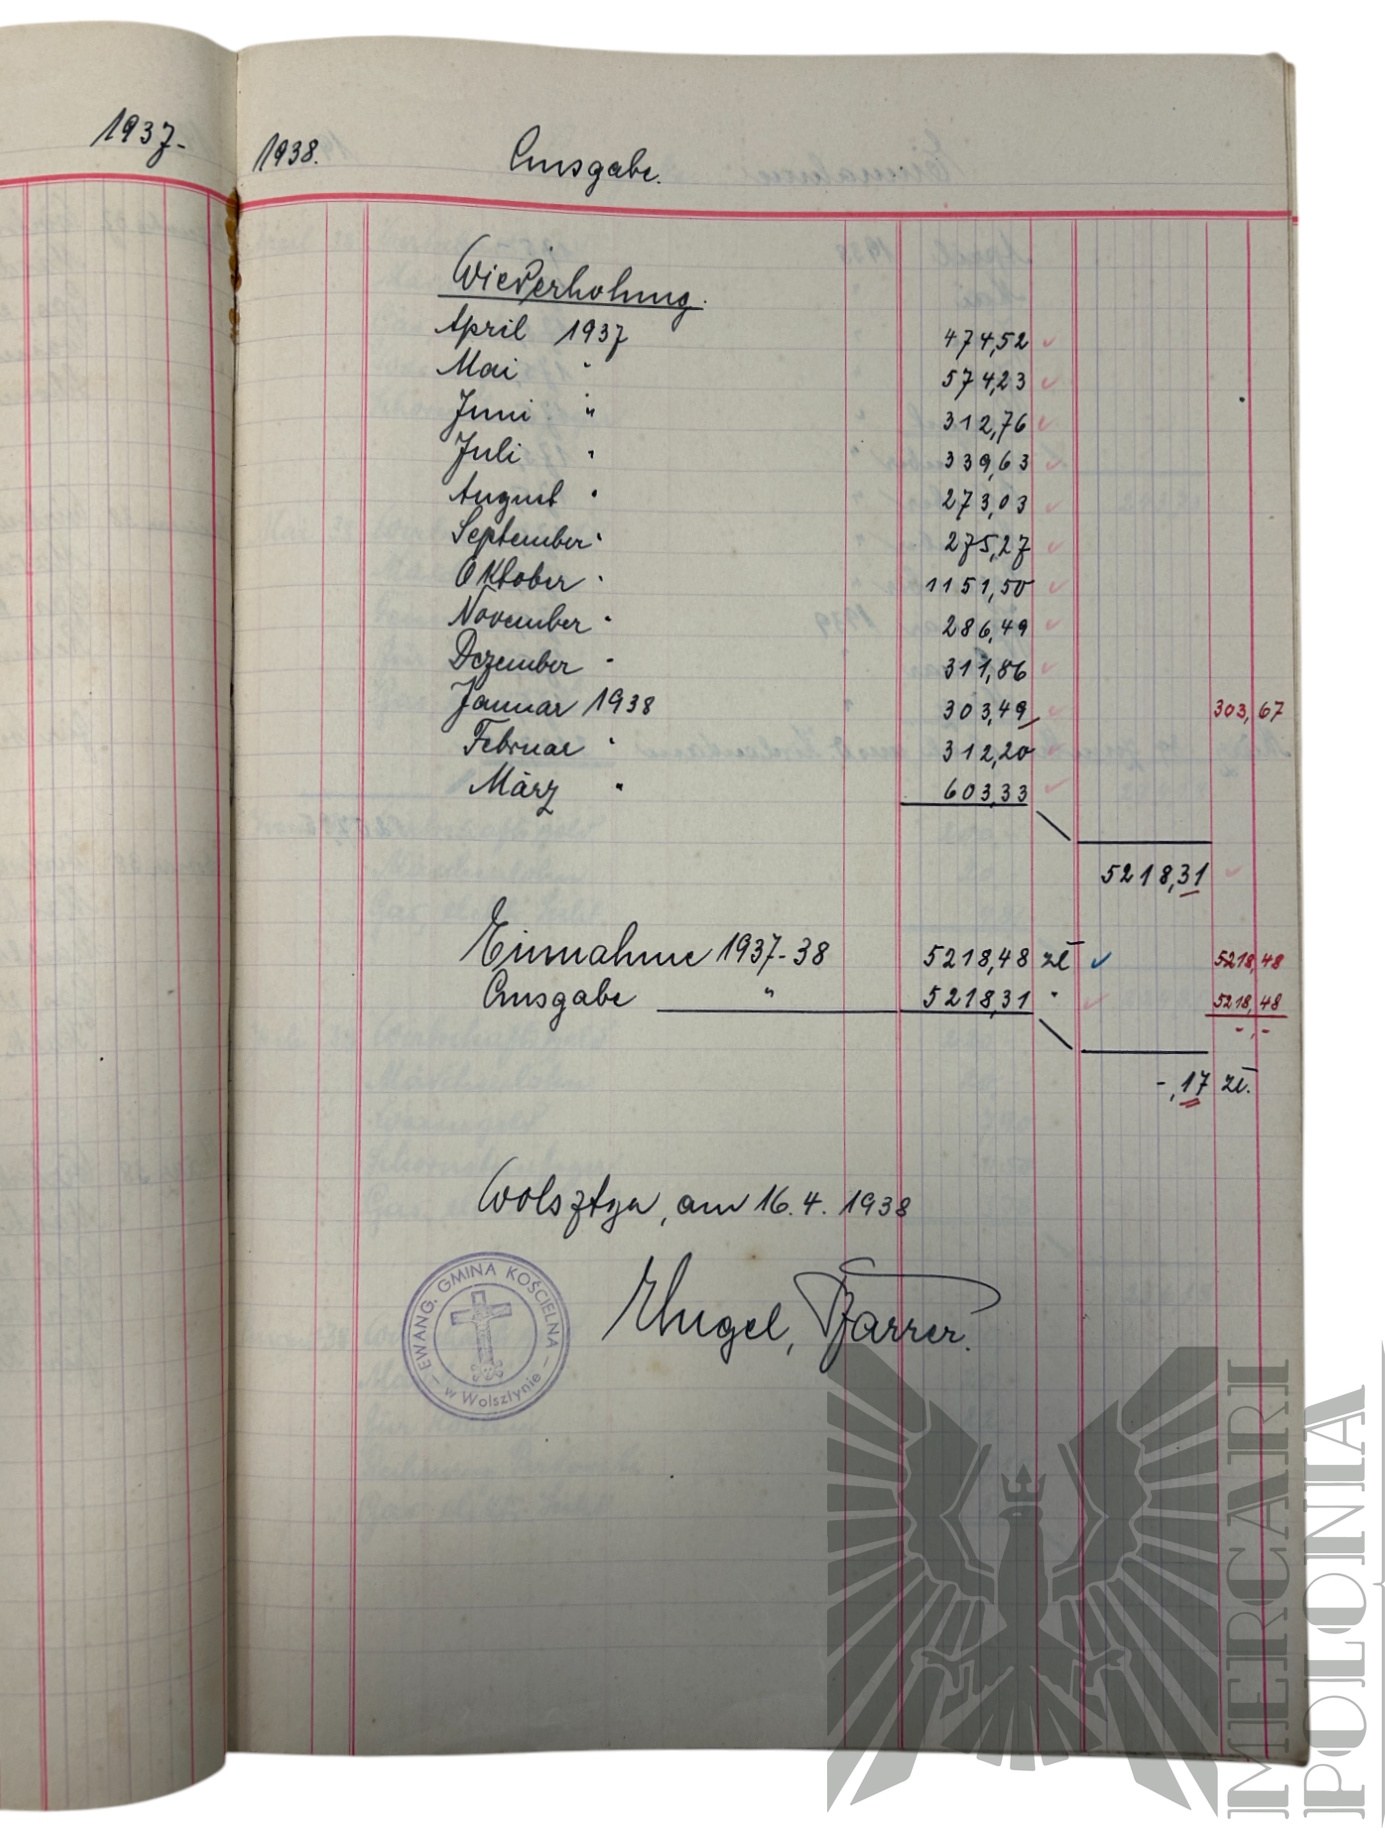 1937.-
1938. Ausgabe.
Wiederholung.
April 1937 474,52 ✓
Mai " 574,23 ✓
Juni " 312,76 ✓
Juli " 339,63 ✓
August " 273,03 ✓
September " 275,27 ✓
Oktober " 1151,50 ✓
November " 286,49 ✓
Dezember " 311,86 ✓
Januar 1938 303,49 ✓ 303,67
Februar " 312,20 ✓
März " 603,33 ✓
5218,31 ✓
Einnahme 1937-38 5218,48 zł ✓ 5218,48
Ausgabe " 5218,31 " ✓ 5218,48
-,-
-,17 zł.
Wolsztyn, am 16.4.1938
EWANG. GMINA KOŚCIELNA
w Wolsztynie
Pfarrer.
MERCARI
POLONIA